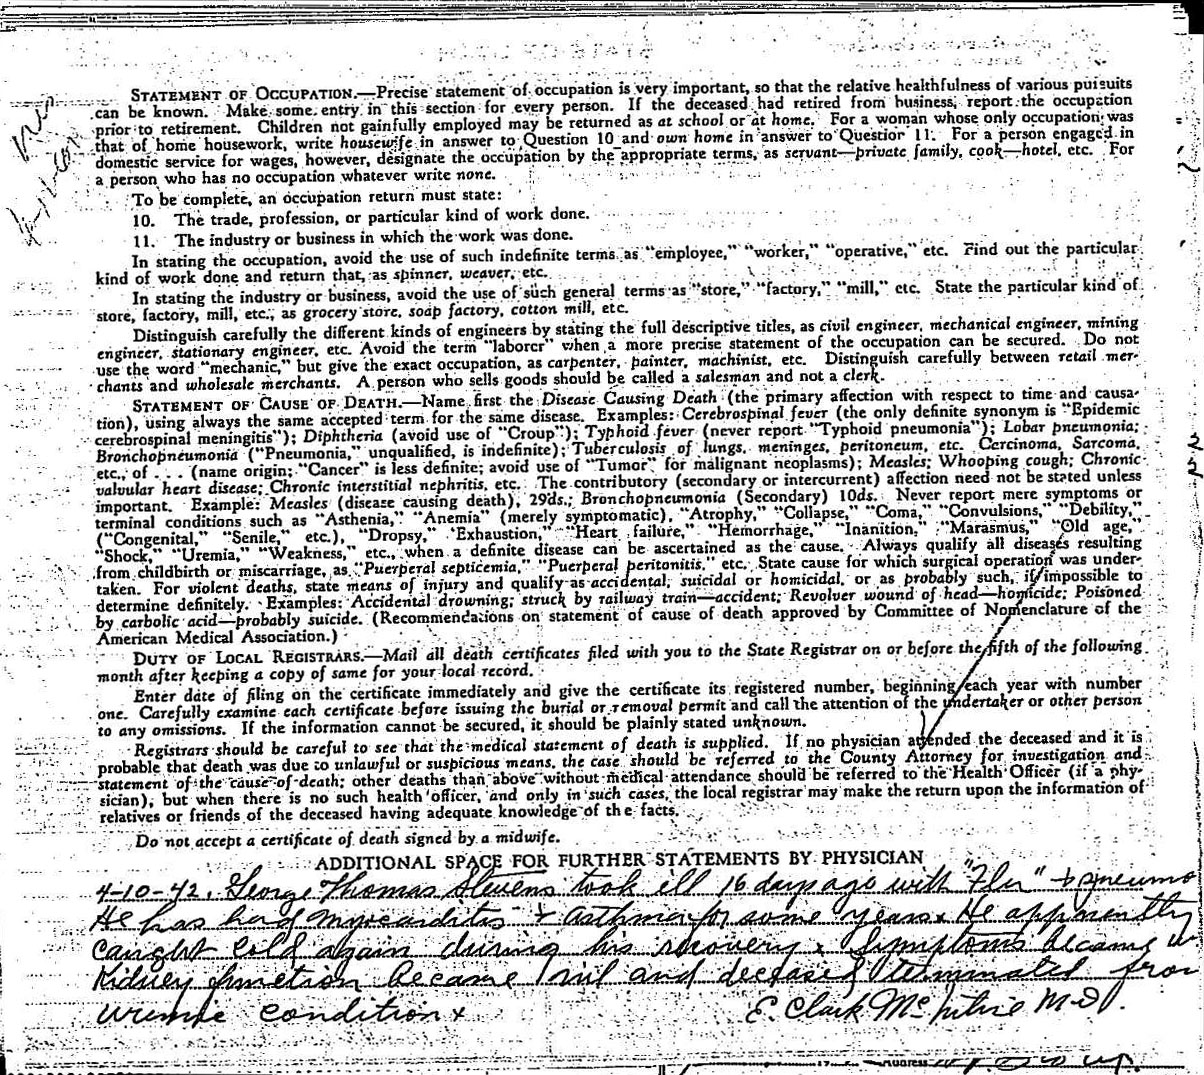 STATEMENT OF OCCUPATION.—Precise statement of occupation is very important, so that the relative healthfulness of various pursuits
can be known. Make some entry in this section for every person. If the deceased had retired from business, report the occupation
prior to retirement. Children not gainfully employed may be returned as at school or at home. For a woman whose only occupation was
that of home housework, write housewife in answer to Question 10 and own home in answer to Question 11. For a person engaged in
domestic service for wages, however, designate the occupation by the appropriate terms, as servant—private family, cook—hotel, etc. For
a person who has no occupation whatever write none.
To be complete, an occupation return must state:
10. The trade, profession, or particular kind of work done.
11. The industry or business in which the work was done.
In stating the occupation, avoid the use of such indefinite terms as "employee," "worker," "operative," etc. Find out the particular
kind of work done and return that, as spinner, weaver, etc.
In stating the industry or business, avoid the use of such general terms as "store," "factory," "mill," etc. State the particular kind of
store, factory, mill, etc., as grocery store, soap factory, cotton mill, etc.
Distinguish carefully the different kinds of engineers by stating the full descriptive titles, as civil engineer, mechanical engineer, mining
engineer, stationary engineer, etc. Avoid the term "laborer" when a more precise statement of the occupation can be secured. Do not
use the word "mechanic," but give the exact occupation, as carpenter, painter, machinist, etc. Distinguish carefully between retail mer-
chants and wholesale merchants. A person who sells goods should be called a salesman and not a clerk.
STATEMENT OF CAUSE OF DEATH.—Name first the Disease Causing Death (the primary affection with respect to time and causa-
tion), using always the same accepted term for the same disease. Examples: Cerebrospinal fever (the only definite synonym is "Epidemic
cerebrospinal meningitis"); Diphtheria (avoid use of "Croup"); Typhoid fever (never report "Typhoid pneumonia"); Lobar pneumonia;
Bronchopneumonia ("Pneumonia," unqualified, is indefinite); Tuberculosis of lungs, meninges, peritoneum, etc. Carcinoma, Sarcoma,
etc., of . . . (name origin; "Cancer" is less definite; avoid use of "Tumor" for malignant neoplasms); Measles; Whooping cough; Chronic
valvular heart disease; Chronic interstitial nephritis, etc. The contributory (secondary or intercurrent) affection need not be stated unless
important. Example: Measles (disease causing death), 29ds.; Bronchopneumonia (Secondary) 10ds. Never report mere symptoms or
terminal conditions such as "Asthenia," "Anemia" (merely symptomatic), "Atrophy," "Collapse," "Coma," "Convulsions," "Debility,"
("Congenital," "Senile," etc.), "Dropsy," "Exhaustion," "Heart failure," "Hemorrhage," "Inanition," "Marasmus," "Old age,"
"Shock," "Uremia," "Weakness," etc., when a definite disease can be ascertained as the cause. Always qualify all diseases resulting
from childbirth or miscarriage, as "Puerperal septicemia," "Puerperal peritonitis," etc. State cause for which surgical operation was under-
taken. For violent deaths, state means of injury and qualify as accidental, suicidal or homicidal, or as probably such, if impossible to
determine definitely. Examples: Accidental drowning; struck by railway train—accident; Revolver wound of head—homicide; Poisoned
by carbolic acid—probably suicide. (Recommendations on statement of cause of death approved by Committee of Nomenclature of the
American Medical Association.)
DUTY OF LOCAL REGISTRARS.—Mail all death certificates filed with you to the State Registrar on or before the fifth of the following
month after keeping a copy of same for your local record.
Enter date of filing on the certificate immediately and give the certificate its registered number, beginning each year with number
one. Carefully examine each certificate before issuing the burial or removal permit and call the attention of the undertaker or other person
to any omissions. If the information cannot be secured, it should be plainly stated unknown.
Registrars should be careful to see that the medical statement of death is supplied. If no physician attended the deceased and it is
probable that death was due to unlawful or suspicious means, the case should be referred to the County Attorney for investigation and
statement of the cause of death; other deaths than above without medical attendance should be referred to the Health Officer (if a phy-
sician), but when there is no such health officer, and only in such cases, the local registrar may make the return upon the information of
relatives or friends of the deceased having adequate knowledge of the facts.
Do not accept a certificate of death signed by a midwife.
ADDITIONAL SPACE FOR FURTHER STATEMENTS BY PHYSICIAN
4-10-42. George Thomas Stevens took ill 16 days ago with "Flu" + pneumo
He has had myocarditis + asthma for some years. He apparently
caught cold again during his recovery. Symptoms became
Kidney function became nil and deceased terminated from
uremic condition
E. Clark Mc M.D.